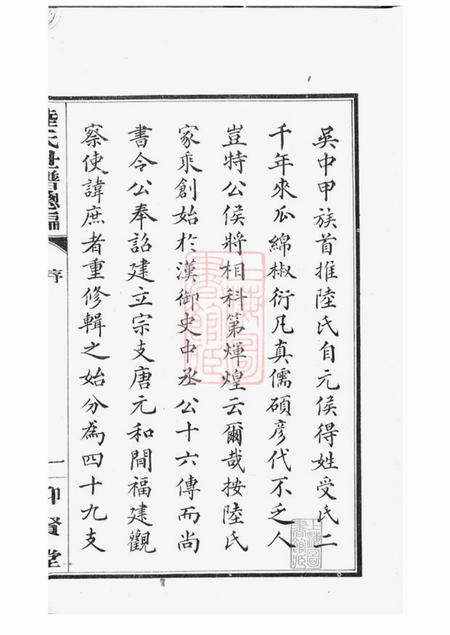 吳中甲族首推陸氏自元侯得姓受氏二
千年來瓜綿椒衍凡真儒碩彥代不乏人
豈特公侯將相科第煇煌云爾哉按陸氏
家乘創始於漢御史中丞公十六傳而尚
書令公奉詔建立宗支唐元和間福建觀
察使諱庶者重修輯之始分為四十九支
陸氏世譜總編
序
一
仰賢堂
上海圖書館藏
上海圖書館藏